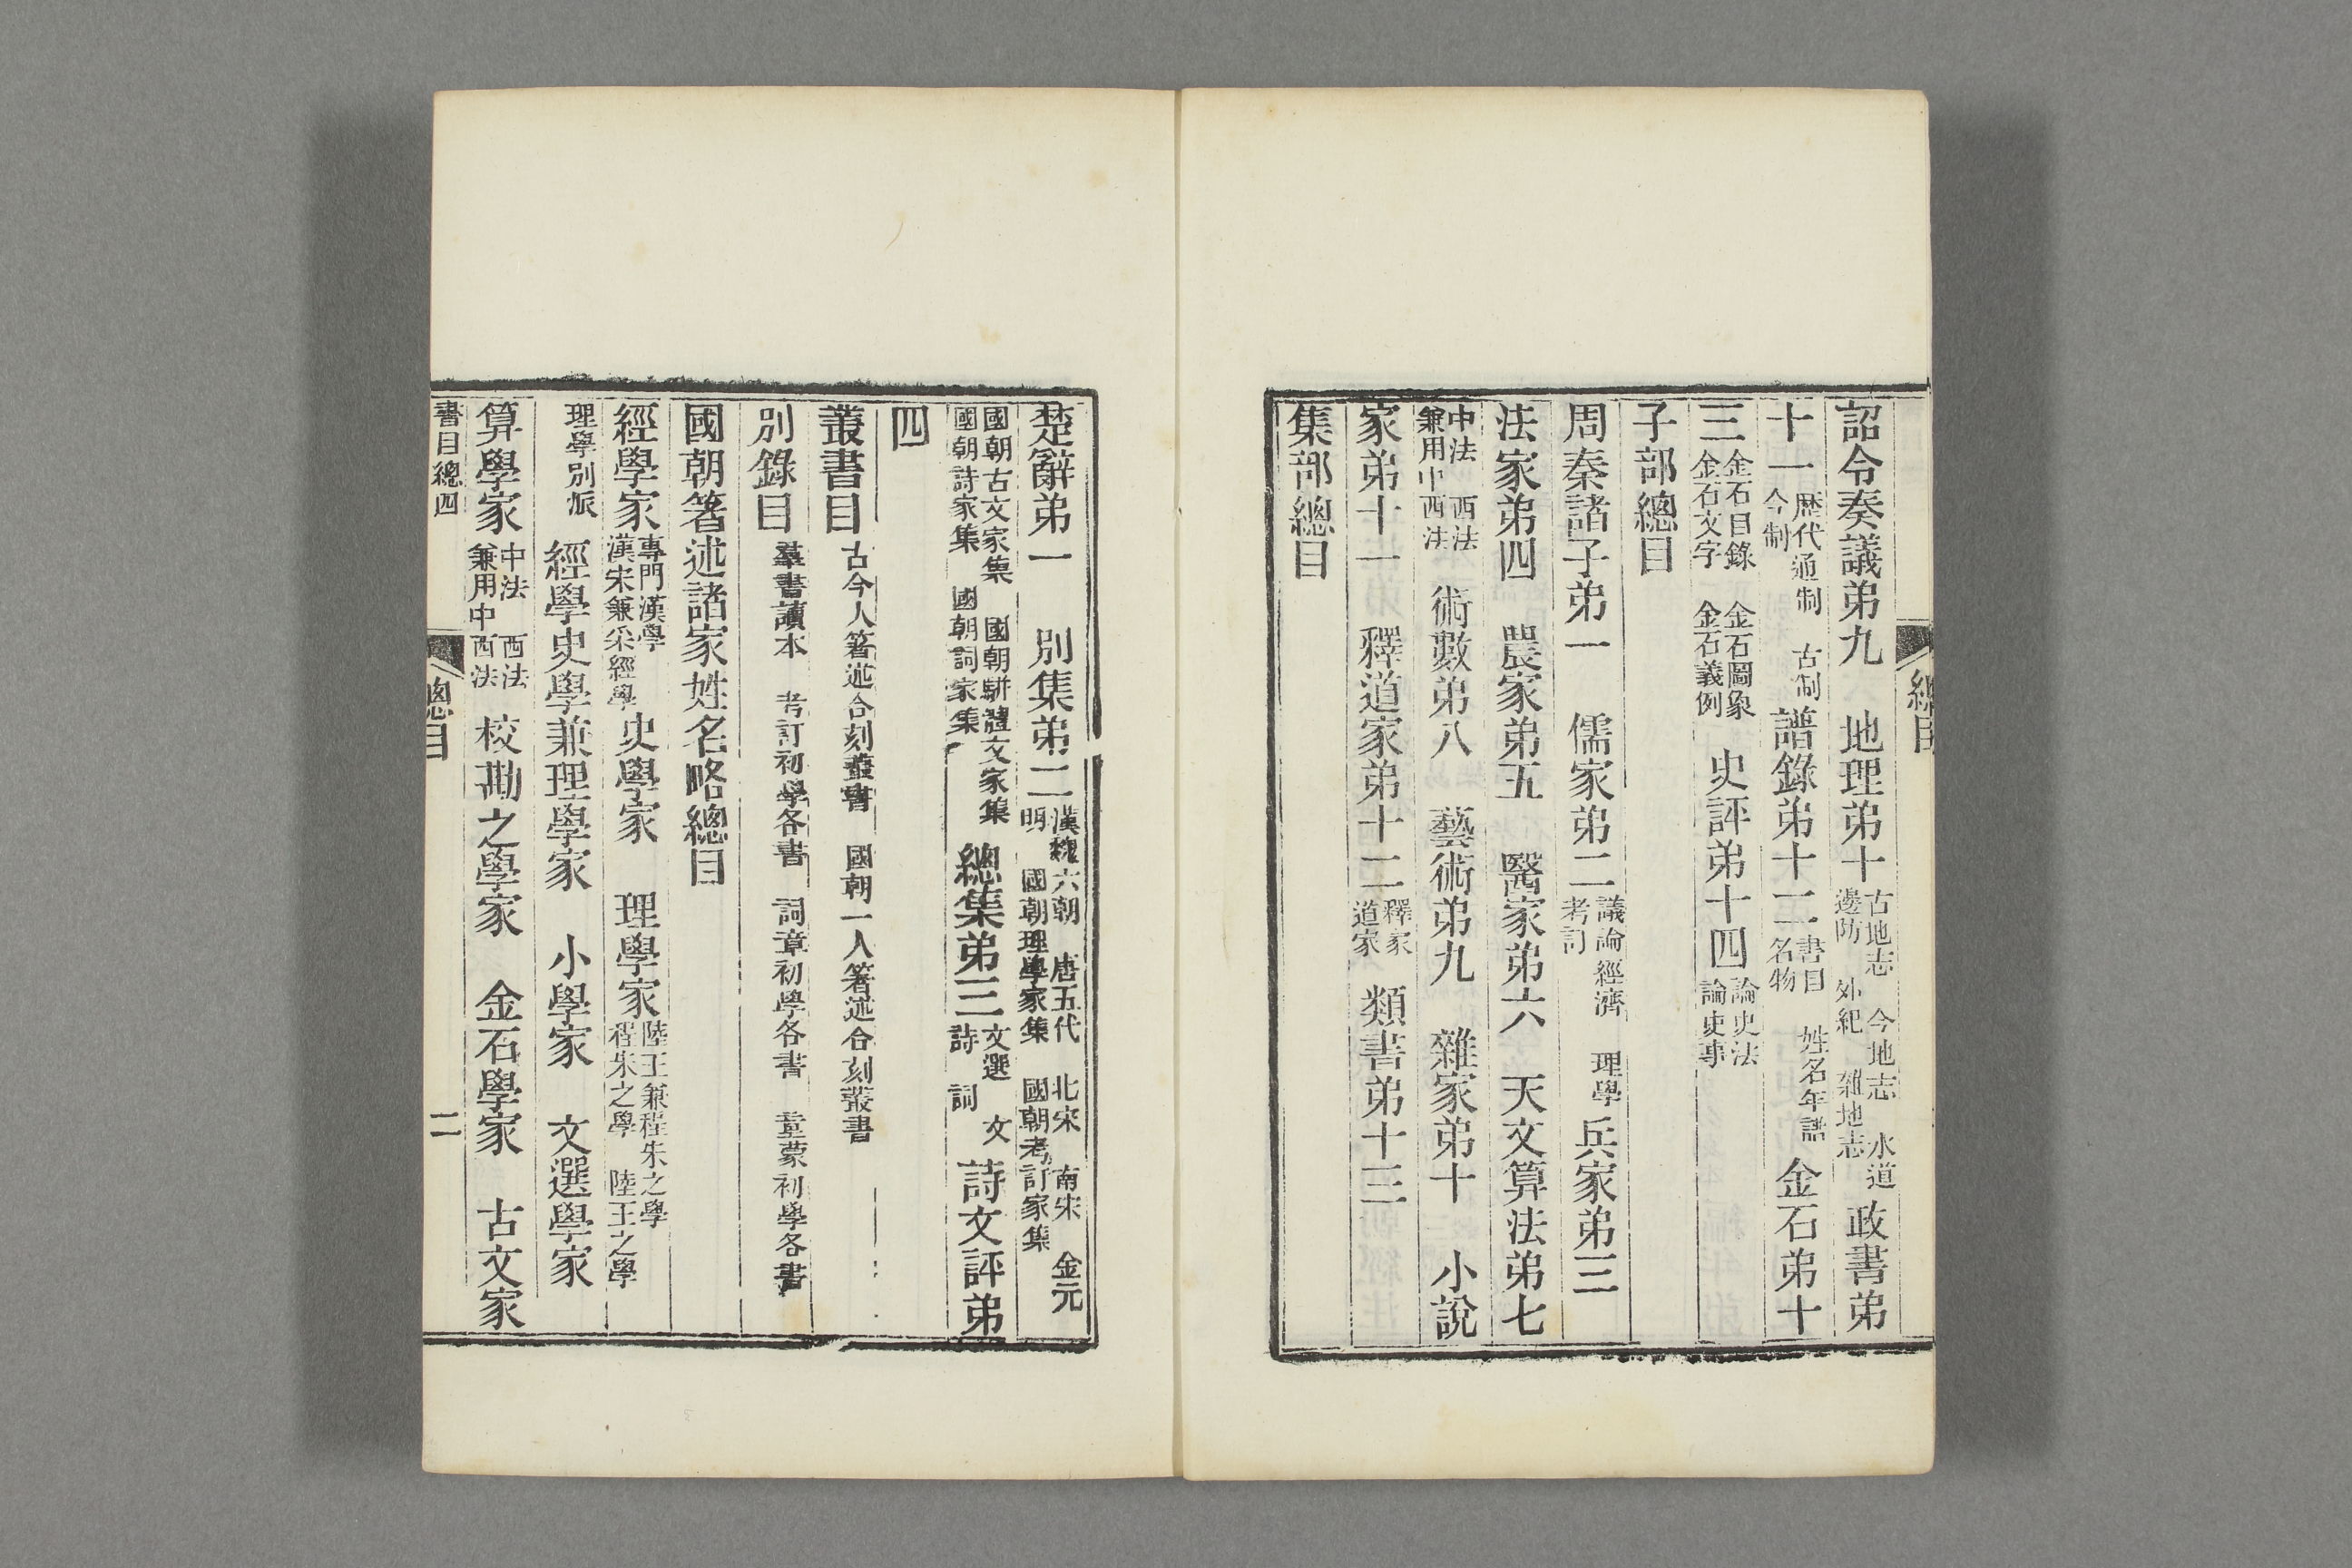 詔令奏議弟九　地理弟十古地志　今地志　水道邊防　外紀　雜地志政書弟
十一歷代通制　古制今制譜錄弟十二書目　姓名年譜名物金石弟十
三金石目錄　金石圖象金石文字　金石義例　史評弟十四論史法論史事
子部總目
周秦諸子弟一　儒家弟二議論經濟　理學考訂兵家弟三
法家弟四　農家弟五　醫家弟六　天文算法弟七
中法　西法兼用中西法　術數弟八　藝術弟九　雜家弟十　小說
家弟十一　釋道家弟十二釋家道家　類書弟十三
集部總目
總目
楚辭弟一　別集弟二漢魏六朝　唐五代　北宋　南宋　金元明　國朝理學家集　國朝考訂家集
國朝古文家集　國朝駢體文家集國朝詩家集　國朝詞家集　總集弟三文選　文詩　詞　詩文評弟
四
叢書目　古今人箸述合刻叢書　國朝一人箸述合刻叢書
別錄目　羣書讀本　考訂初學各書　詞章初學各書　童蒙初學各書
國朝箸述諸家姓名略總目
經學家專門漢學漢宋兼采經學　史學家　理學家陸王兼程朱之學程朱之學　陸王之學
理學別派　經學史學兼理學家　小學家　文選學家
算學家中法　西法兼用中西法　校勘之學家　金石學家　古文家
書目總四　總目　二